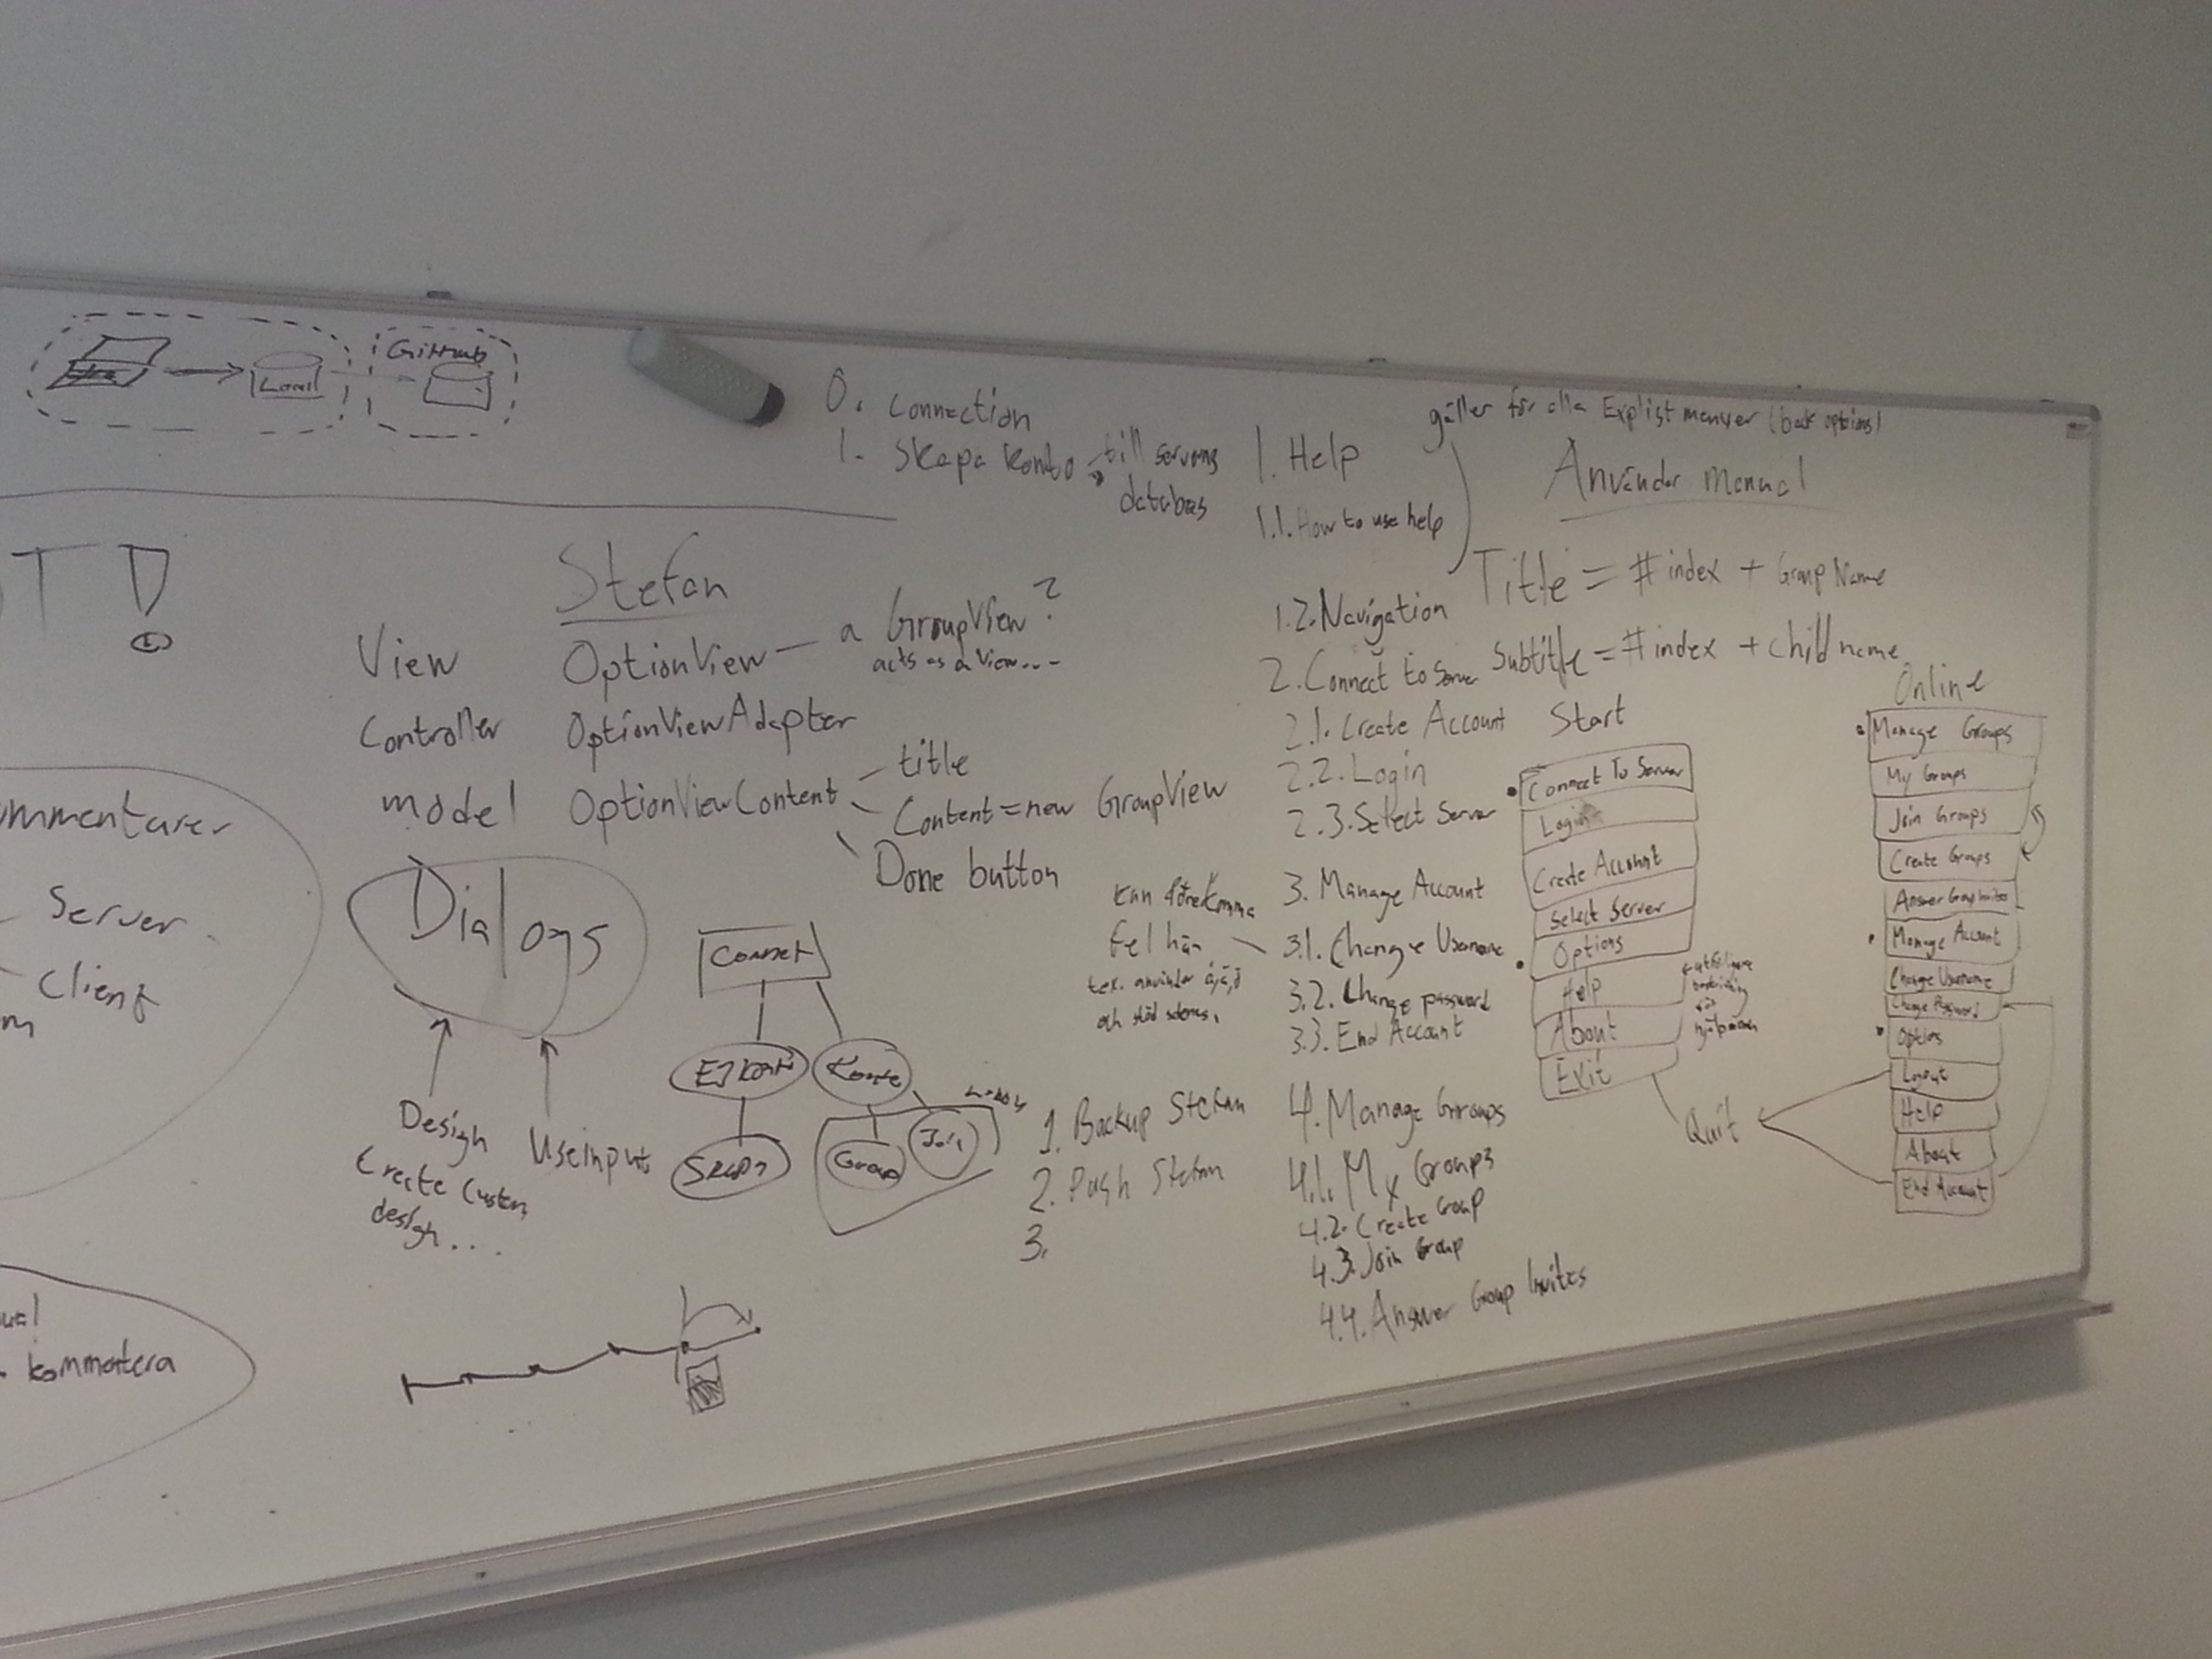 GitHub
Local
0. Connection
1. Skapa konto till servens
databas
Stefan
View OptionView a GroupView?
acts as a view...
Controller OptionViewAdapter
model OptionViewContent
title
Content = new GroupView
Done button
ommentarer
Server
Client
kommentera
Dialogs
Design
Create Custom
design...
Useinput
Connect
EJ konto
Konto
Skapa
Group
Join
1. Backup Stefan
2. Push Stefan
3.
1. Help
1.1. How to use help
1.2. Navigation
2. Connect to Server
2.1. Create Account
2.2. Login
2.3. Select Server
3. Manage Account
3.1. Change Username
3.2. Change password
3.3. End Account
kan förekomma
fel här
t.ex. använder å,ä,ö
och stöd saknas.
4. Manage Groups
4.1. My Groups
4.2. Create Group
4.3. Join Group
4.4. Answer Group Invites
gäller för alla Explist menyer (back options)
Användar manual
Title = # index + Group Name
Subtitle = # index + child name
Start
Connect To Server
Login
Create Account
Select Server
Options
Help
About
Exit
Quit
Online
Manage Groups
My Groups
Join Groups
Create Groups
Answer Group Invites
Manage Account
Change Username
Change Password
Options
Logout
Help
About
End Account